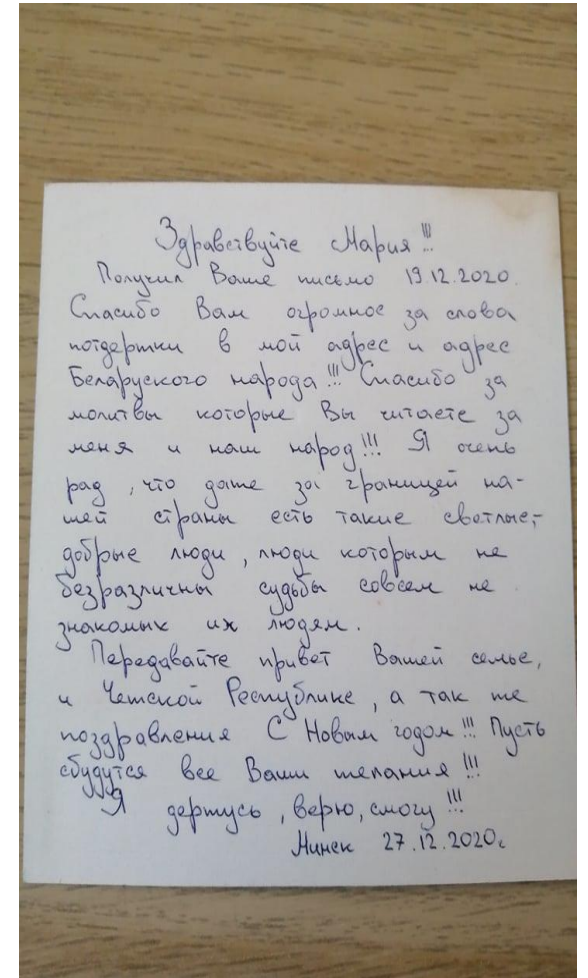 Здравствуйте Мария!!!
Получил Ваше письмо 19.12.2020.
Спасибо Вам огромное за слова
потдержки в мой адрес и адрес
Беларуского народа!!! Спасибо за
молитвы которые Вы читаете за
меня и наш народ!!! Я очень
рад, что даже за границей на-
шей страны есть такие светлые,
добрые люди, люди которым не
безразличны судьбы совсем не
знакомых их людям.
Передавайте привет Вашей семье,
и Чешской Республике, а так же
поздравления С Новым годом!!! Пусть
сбудутся все Ваши желания!!!
Я держусь, верю, смогу!!!
Минск 27.12.2020г.